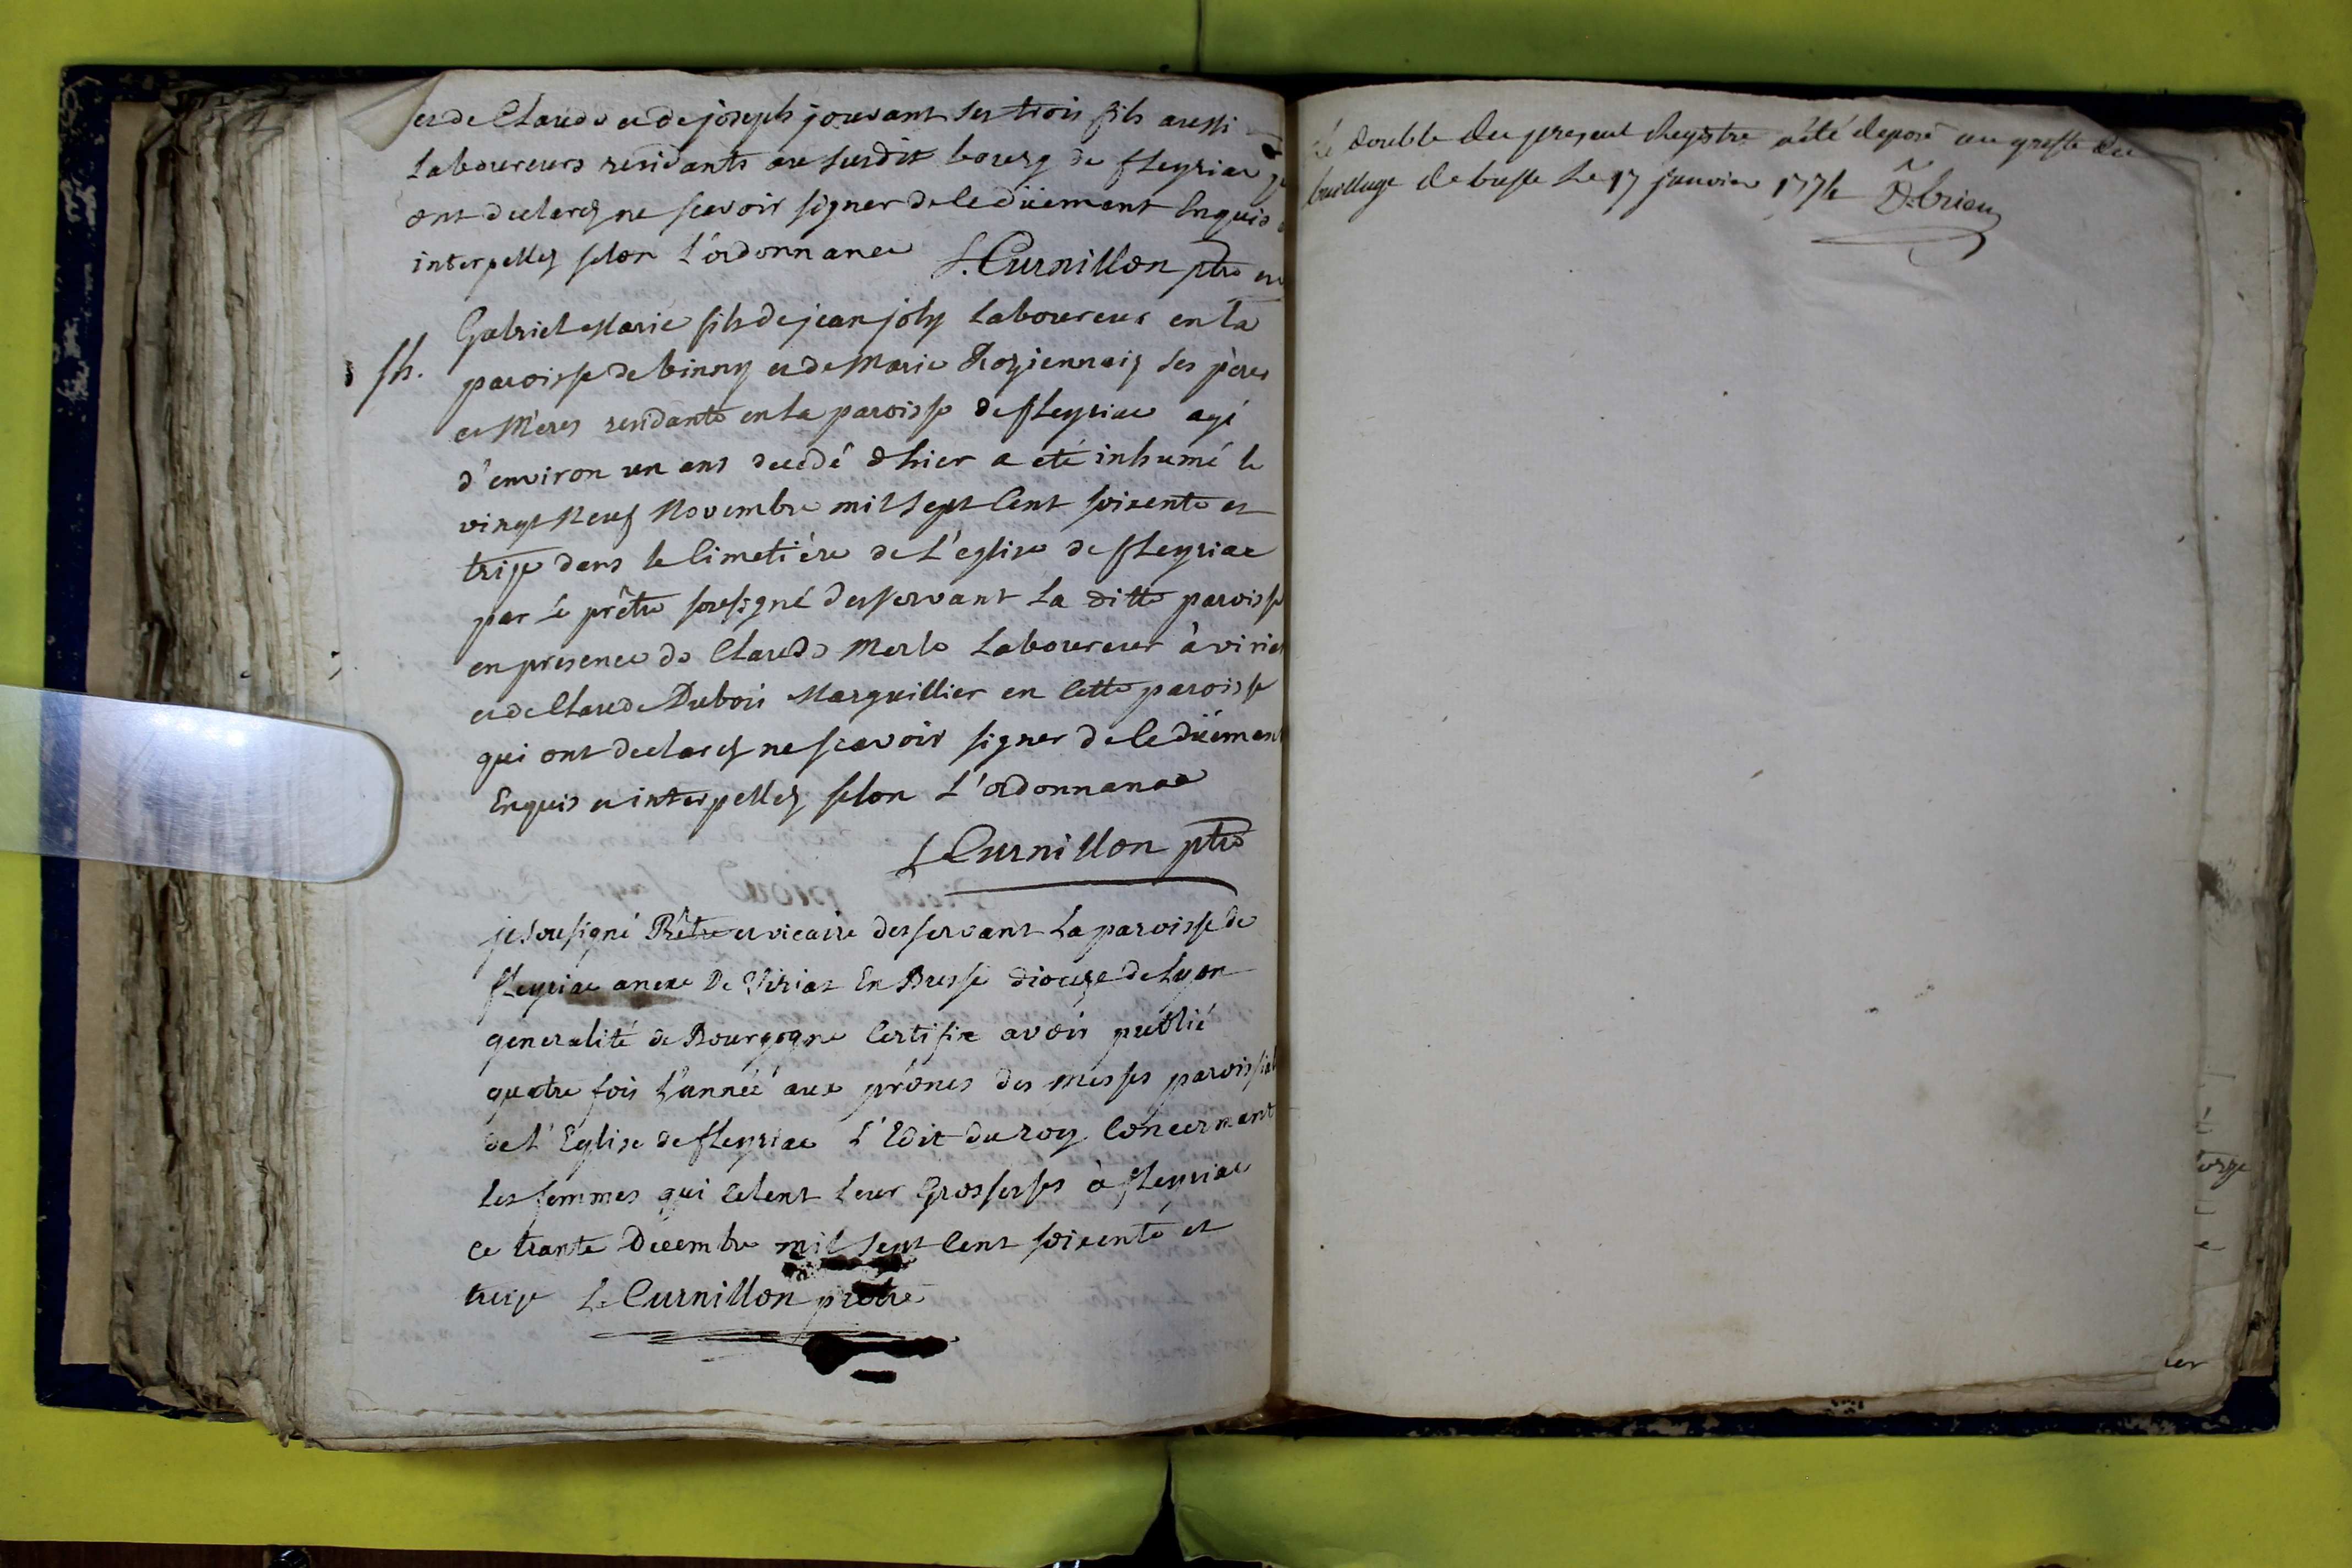 et de Claude et de joseph jouvant ses trois fils aussi
Laboureurs residants au susdit bourg de fleyriac
ont declarez ne scavoir signer de ce düement Enquis
interpellez selon L'ordonnance L. Curnillon ptre
Gabriel Marie fils de jean joly Laboureur en la
sh. paroisse de binny et de Marie ses pères
et Meres residants en la paroisse de fleyriac agé
d'environ un ans decedé d'hier a eté inhumé le
vingt Neuf Novembre mil sept Cent soixente et
treize dans le Cimetière de L'eglise de fleyriac
par Le prêtre sousigné desservant La ditte paroisse
en presence de Claude Merle Laboureur à viriat
et de Claude Dubois Marguillier en Cette paroisse
qui ont declarez ne scavoir signer de ce düement
Enquis et interpellez selon L'ordonnance
L Curnillon ptre
je sousigné Prêtre et vicaire desservant La paroisse de
fleyriac anexe De Viriat En Bresse diocese de Lyon
generalité de Bourgogne Certifie avoir publié
quatre fois L'année aux prônes des messes paroissial
de L'Eglise de fleyriac L'Edit du roy Concernant
Les femmes qui celent Leur Grossesses à fleyriac
ce trante Décembre mil sept Cent soixente et
treize L. Curnillon prêtre
Le double du present Registre a été deposé au greffe du
bailliage de bresse Le 17 janvier 1774
orge
er